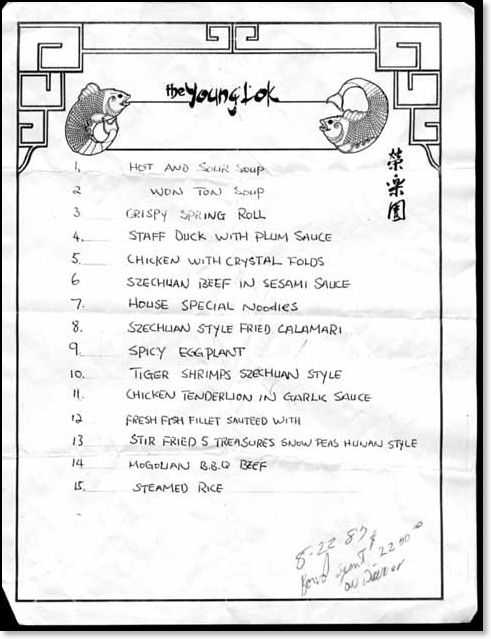 the Young Lok
榮樂園
1. HOT AND SOUR SOUP
2 WON TON SOUP
3. CRISPY SPRING ROLL
4. STAFF DUCK WITH PLUM SAUCE
5. CHICKEN WITH CRYSTAL FOLDS
6 SZECHUAN BEEF IN SESAMI SAUCE
7. HOUSE SPECIAL NOODIES
8. SZECHUAN STYLE FRIED CALAMARI
9. SPICY EGGPLANT
10. TIGER SHRIMPS SZECHUAN STYLE
11. CHICKEN TENDERLION IN GARLIC SAUCE
12 FRESH FISH FILLET SAUTEED WITH
13 STIR FRIED 5 TREASURES SNOW PEAS HUNAN STYLE
14 MOGOLIAN B.B.Q BEEF
15. STEAMED RICE
8-22 87
spent $
on Dinner